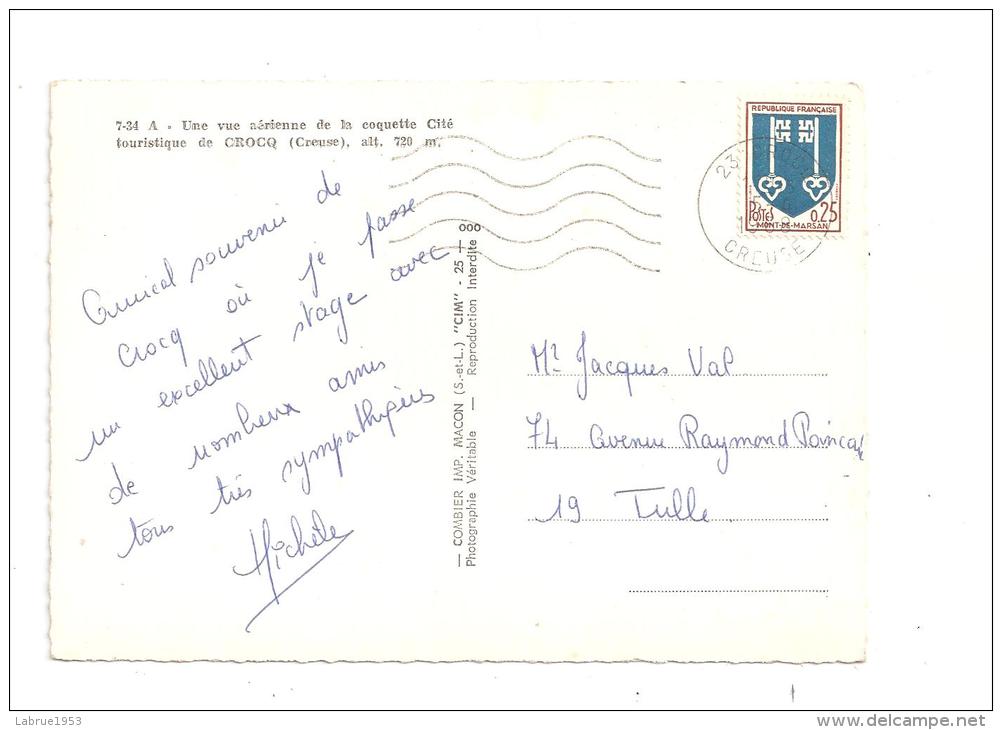 7-34 A - Une vue aérienne de la coquette Cité
touristique de CROCQ (Creuse), alt. 720 m.
Amical souvenir de
Crocq où je passe
un excellent stage avec
de nombreux amis
tous très sympathiques
Michèle
— COMBIER IMP. MACON (S.-et-L.) "CIM" - 25 —
Photographie Véritable — Reproduction Interdite
ooo
REPUBLIQUE FRANÇAISE
POSTES 0,25
MONT-DE-MARSAN
23
CREUSE
Mr Jacques Val
74 avenue Raymond Poincaré
19 Tulle
Labrue1953
delcampe.net